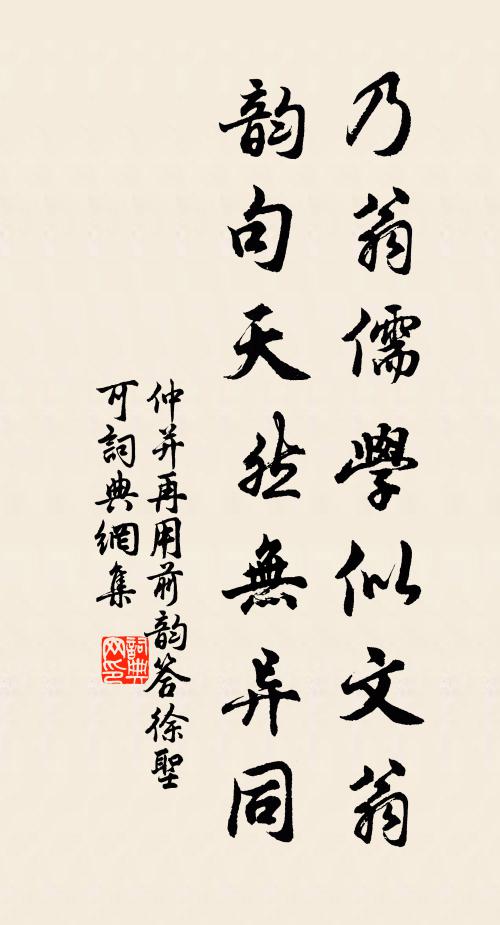 乃翁儒學似文翁
韵句天然無异同
仲并再用前韵答徐聖
可詞典網集
詞典网印